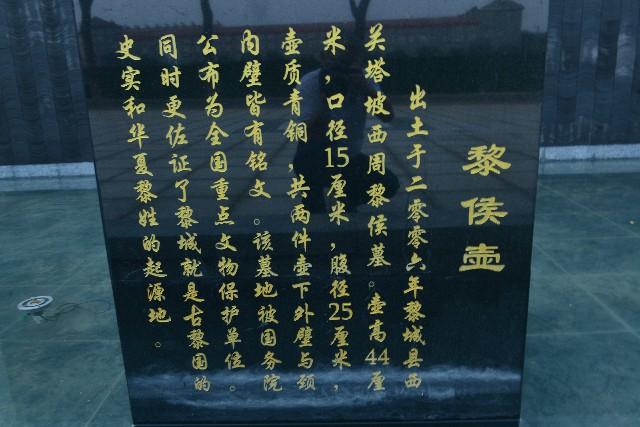 黎侯壶
出土于二零零六年黎城县西
关塔坡西周黎侯墓。壶高44厘
米，口径15厘米，腹径25厘米，
壶质青铜，共两件壶下外壁与颈
内壁皆有铭文。该墓地被国务院
公布为全国重点文物保护单位。
同时更佐证了黎城就是古黎国的
史实和华夏黎姓的起源地。